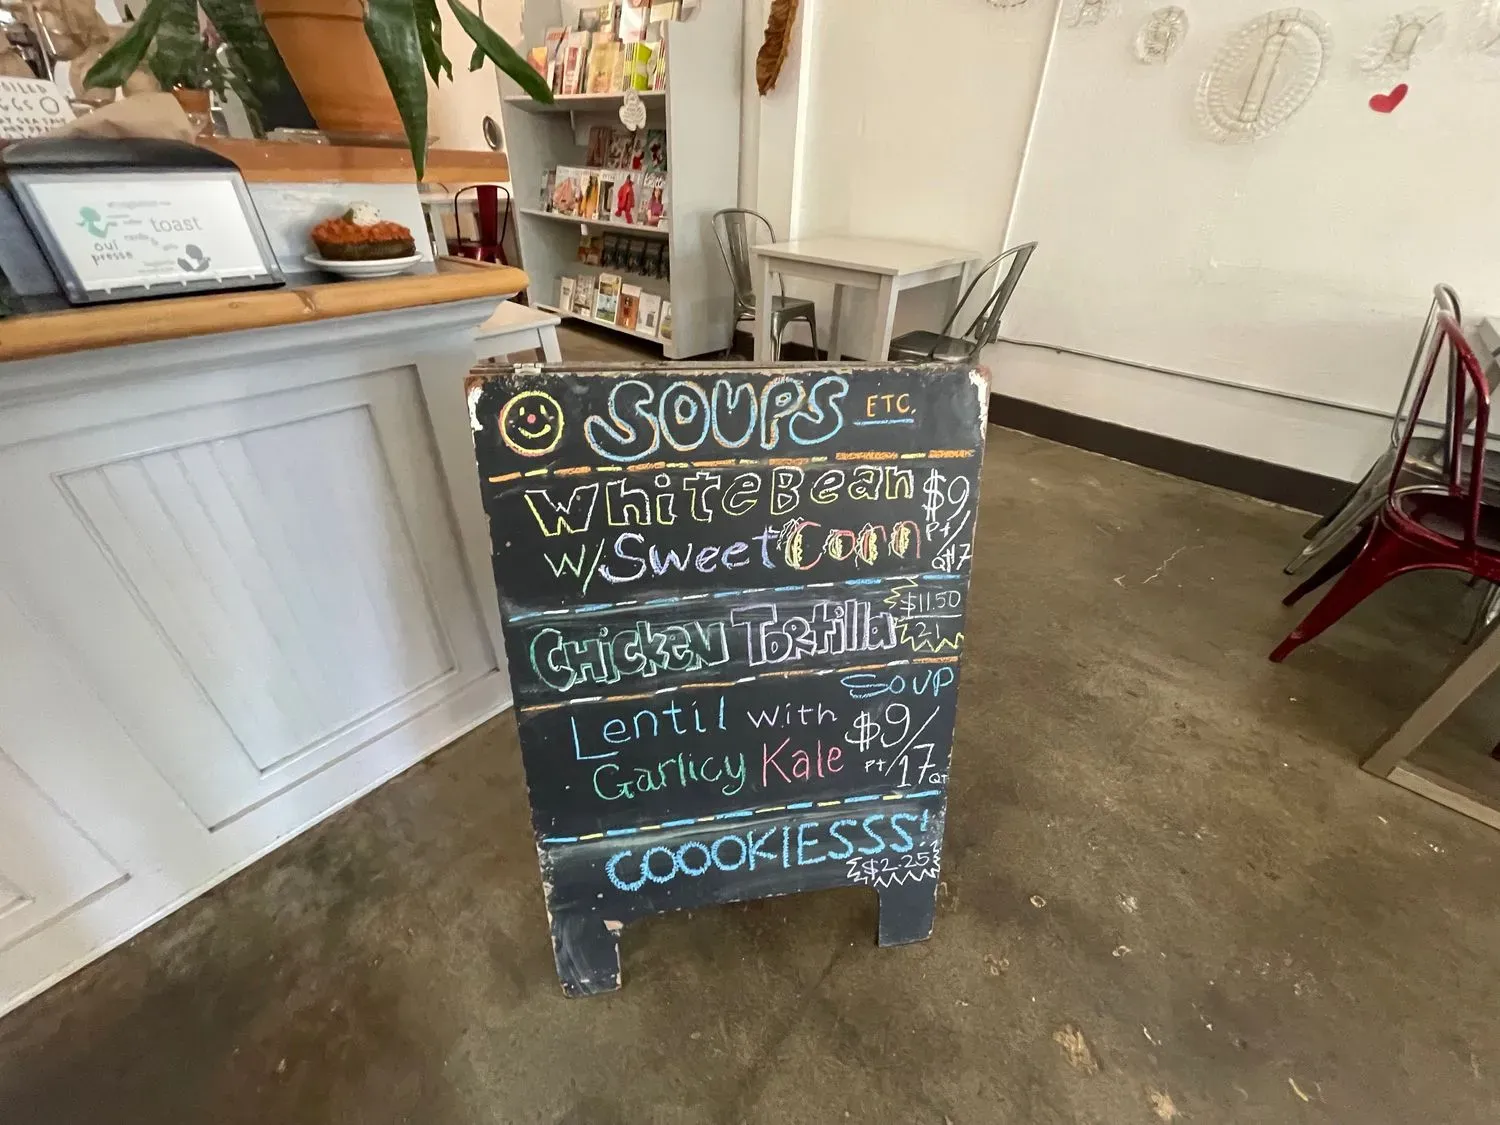 SOUPS ETC.
White Bean $9
Pt/
w/Sweet Corn QT/17
Chicken Tortilla $11.50
21
Soup
Lentil with $9/
Garlicy Kale Pt/17QT
COOOKIESSS!
$2.25
toast
oui
presse